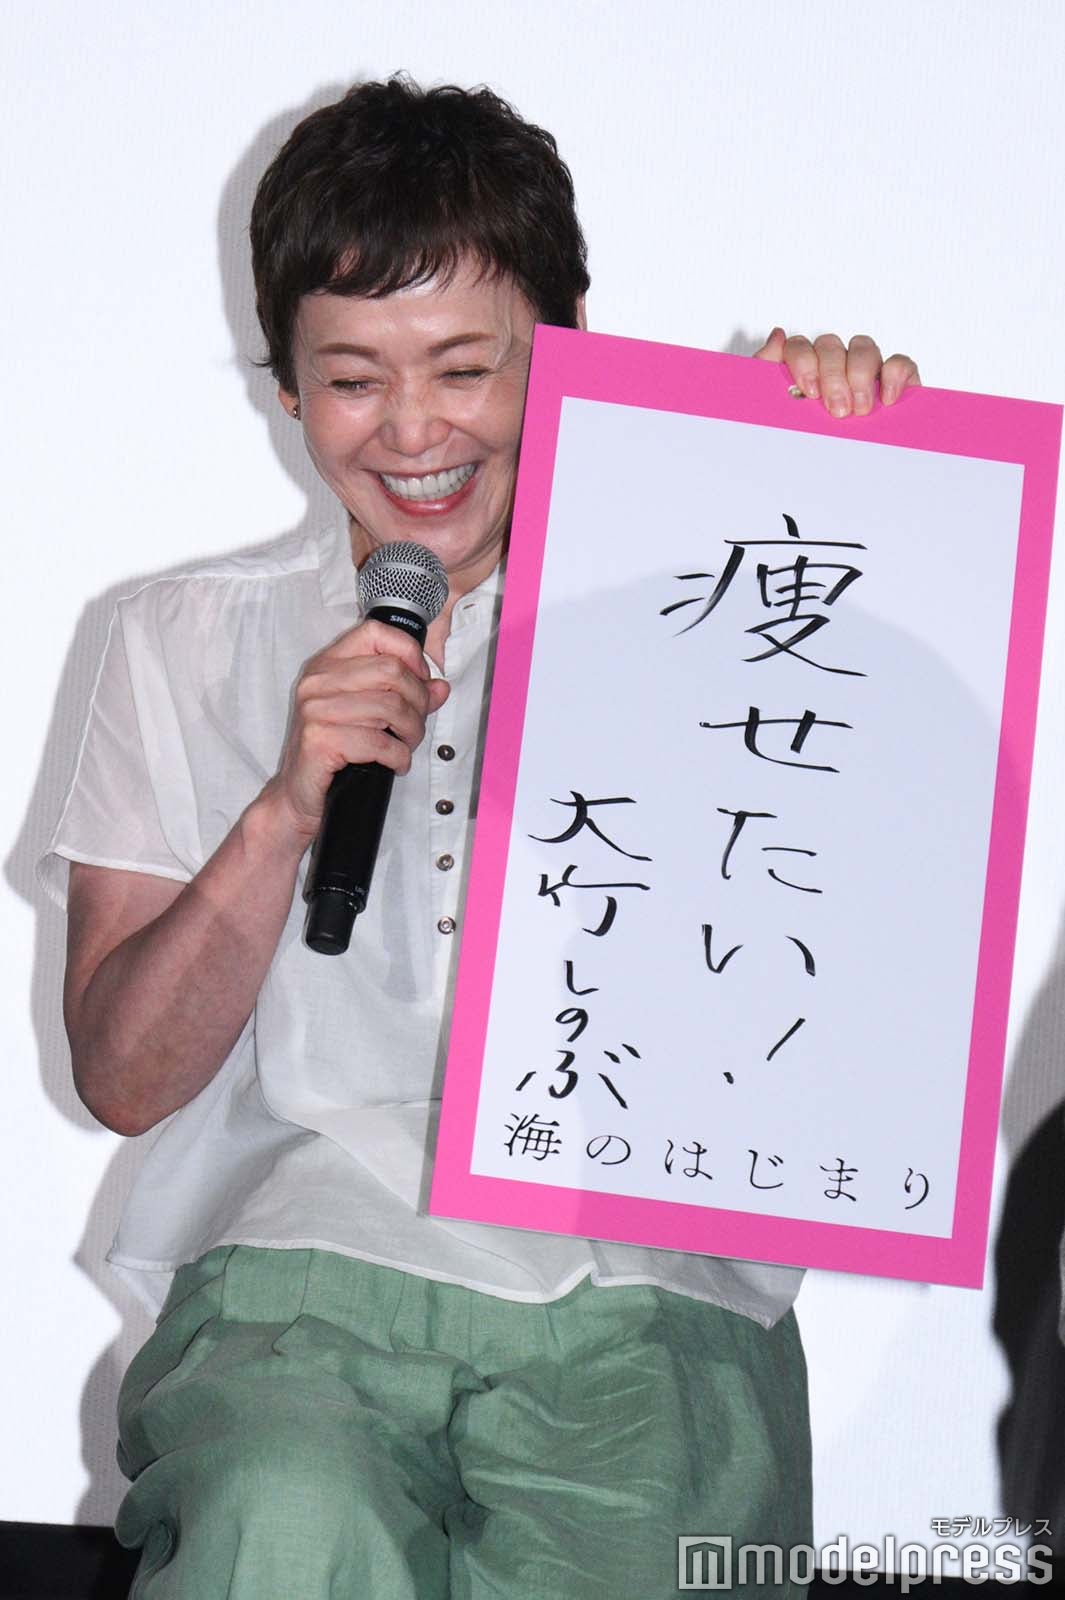 痩せたい!
大竹しのぶ
海のはじまり
SHURE
モデルプレス
modelpress